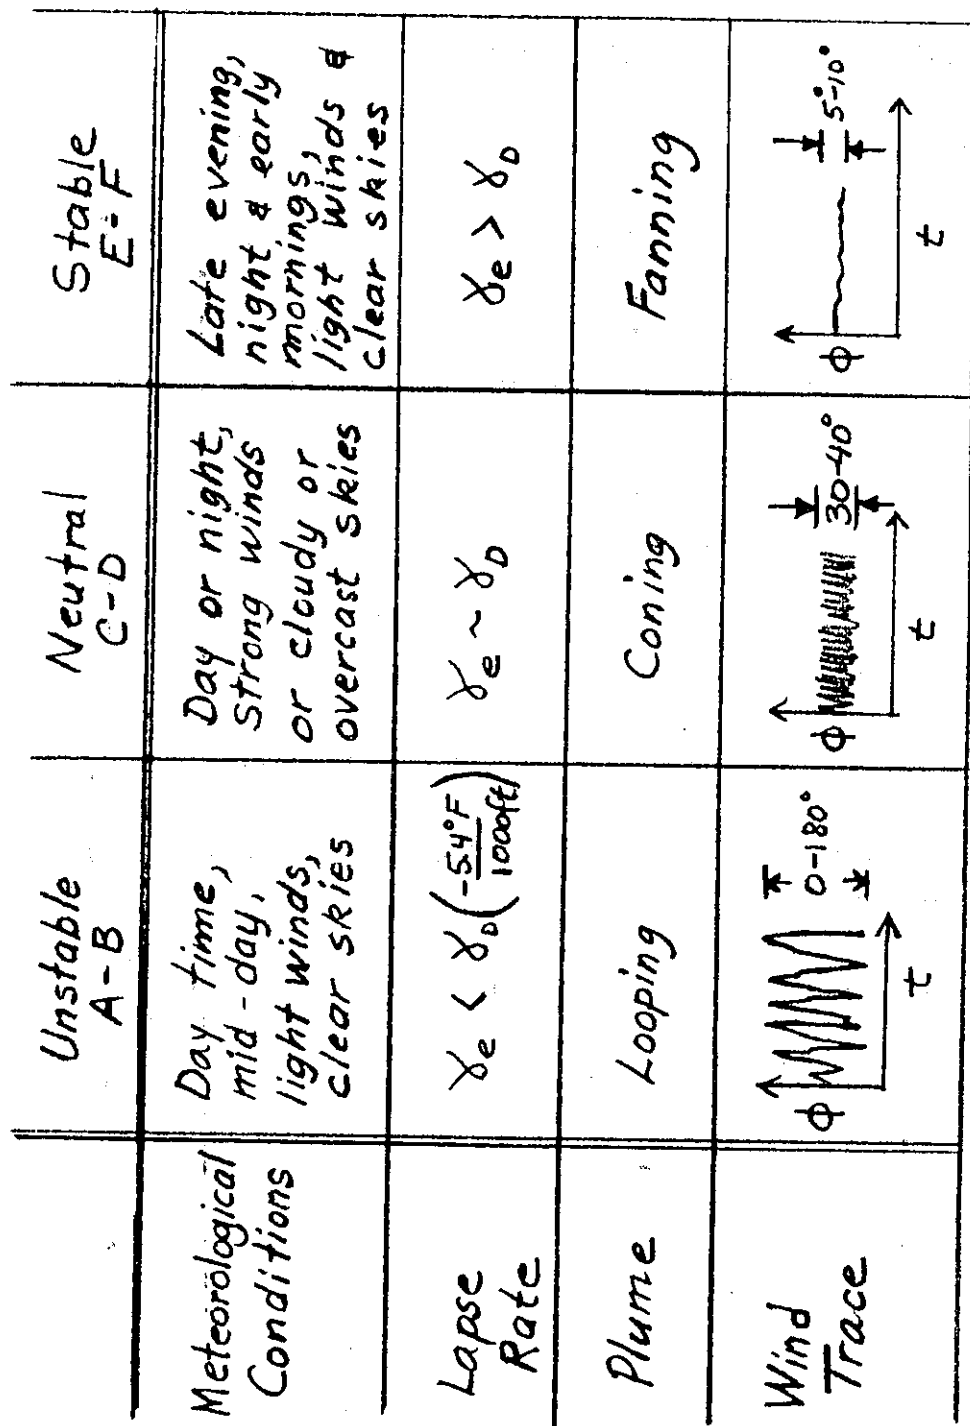 Unstable
A-B
Neutral
C-D
Stable
E-F
Meteorological
Conditions
Day time,
mid-day,
light winds,
clear skies
Day or night,
strong winds
or cloudy or
overcast skies
Late evening,
night & early
mornings,
light winds &
clear skies
Lapse
Rate
γe < γD (-5.4°F/1000ft)
γe ~ γD
γe > γD
Plume
Looping
Coning
Fanning
Wind
Trace
ϕ
t
0-180°
ϕ
t
30-40°
ϕ
t
5°-10°